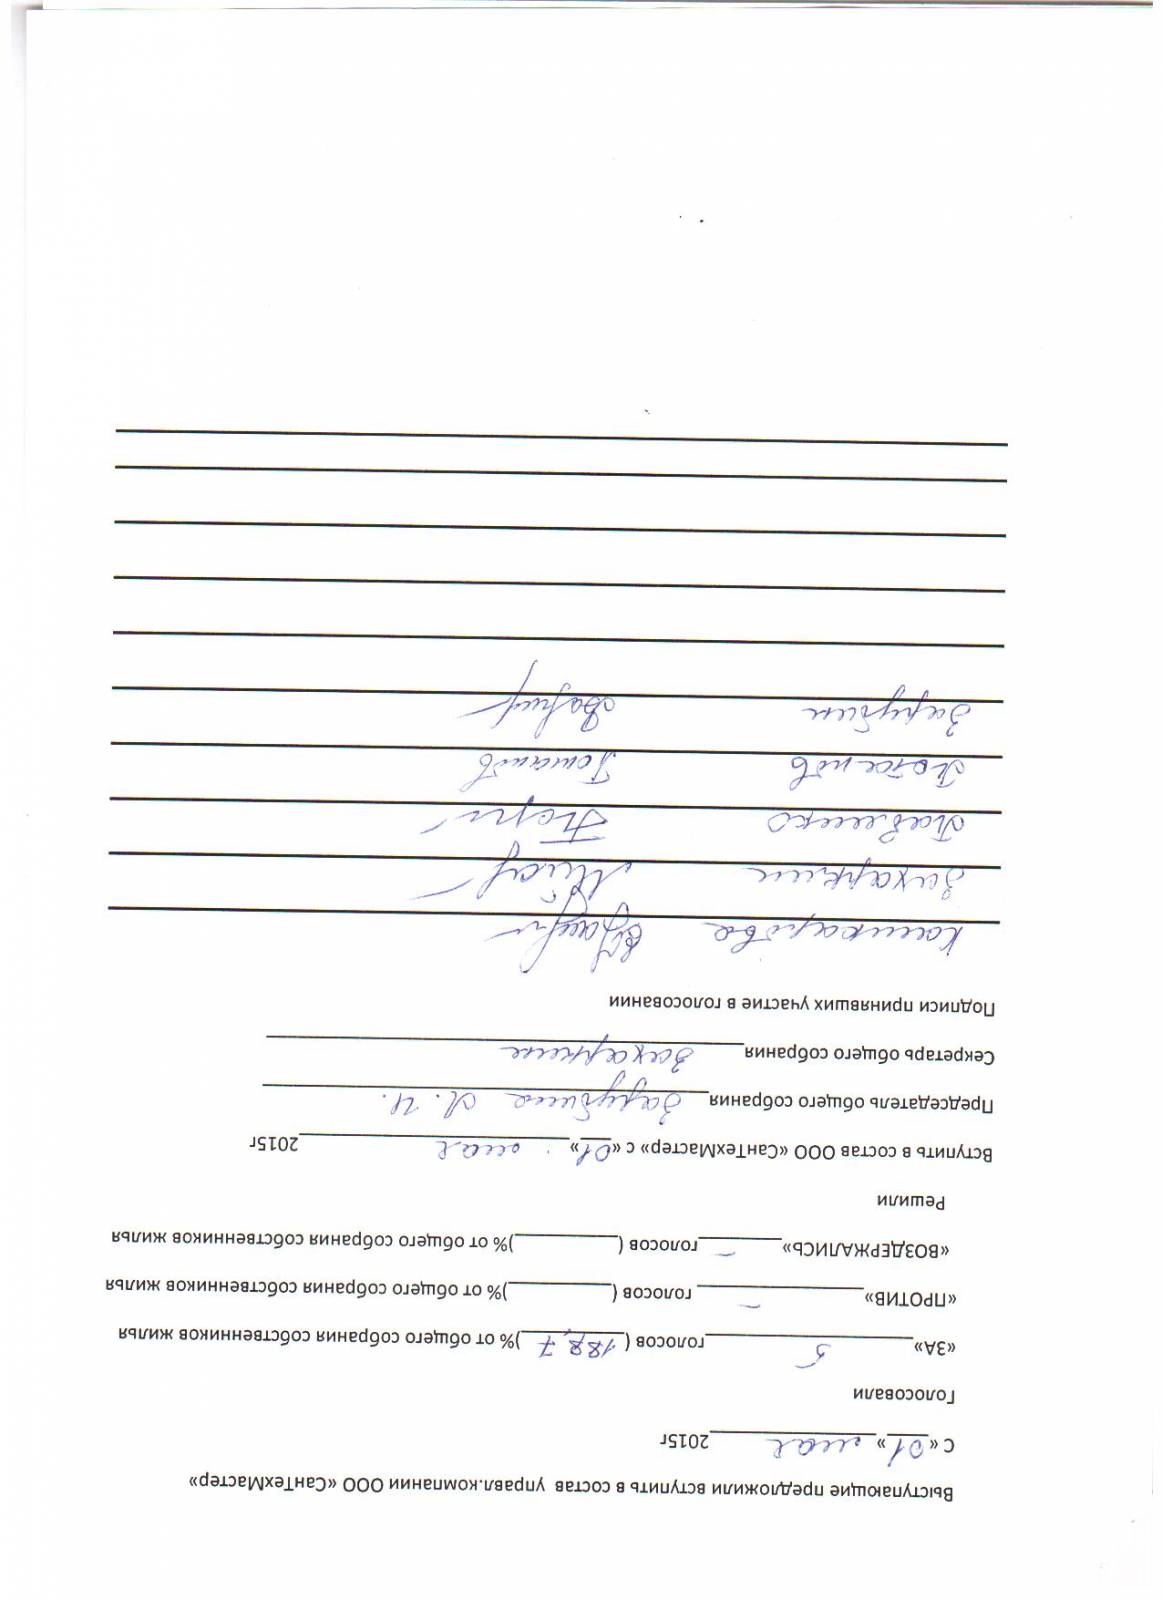 Выступающие предложили вступить в состав управл.компании ООО «СанТехМастер»
С «01» мая 2015г
Голосовали
«ЗА» 5 голосов (188,7)% от общего собрания собственников жилья
«ПРОТИВ» – голосов ( )% от общего собрания собственников жилья
«ВОЗДЕРЖАЛИСЬ» – голосов ( )% от общего собрания собственников жилья
Решили
Вступить в состав ООО «СанТехМастер» с «01» мая 2015г
Председатель общего собрания Зарубина Л. И.
Секретарь общего собрания Захаркин
Подписи принявших участие в голосовании
Кашкарова
Захаркин
Павленко
Потапов Потапов
Зарубин